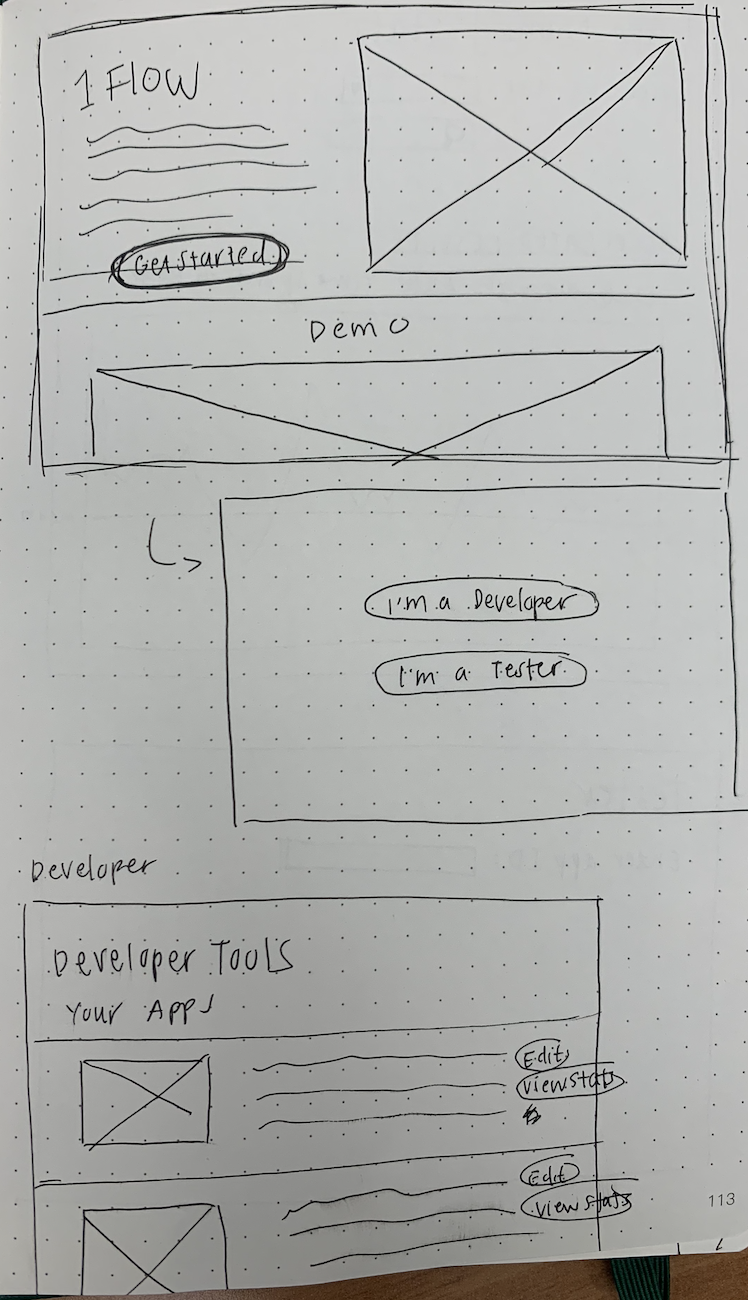 1 FLOW
Get Started
Demo
I'm a Developer
I'm a Tester
Developer
Developer Tools
Your Apps
Edit
View Stats
Edit
View Stats
113